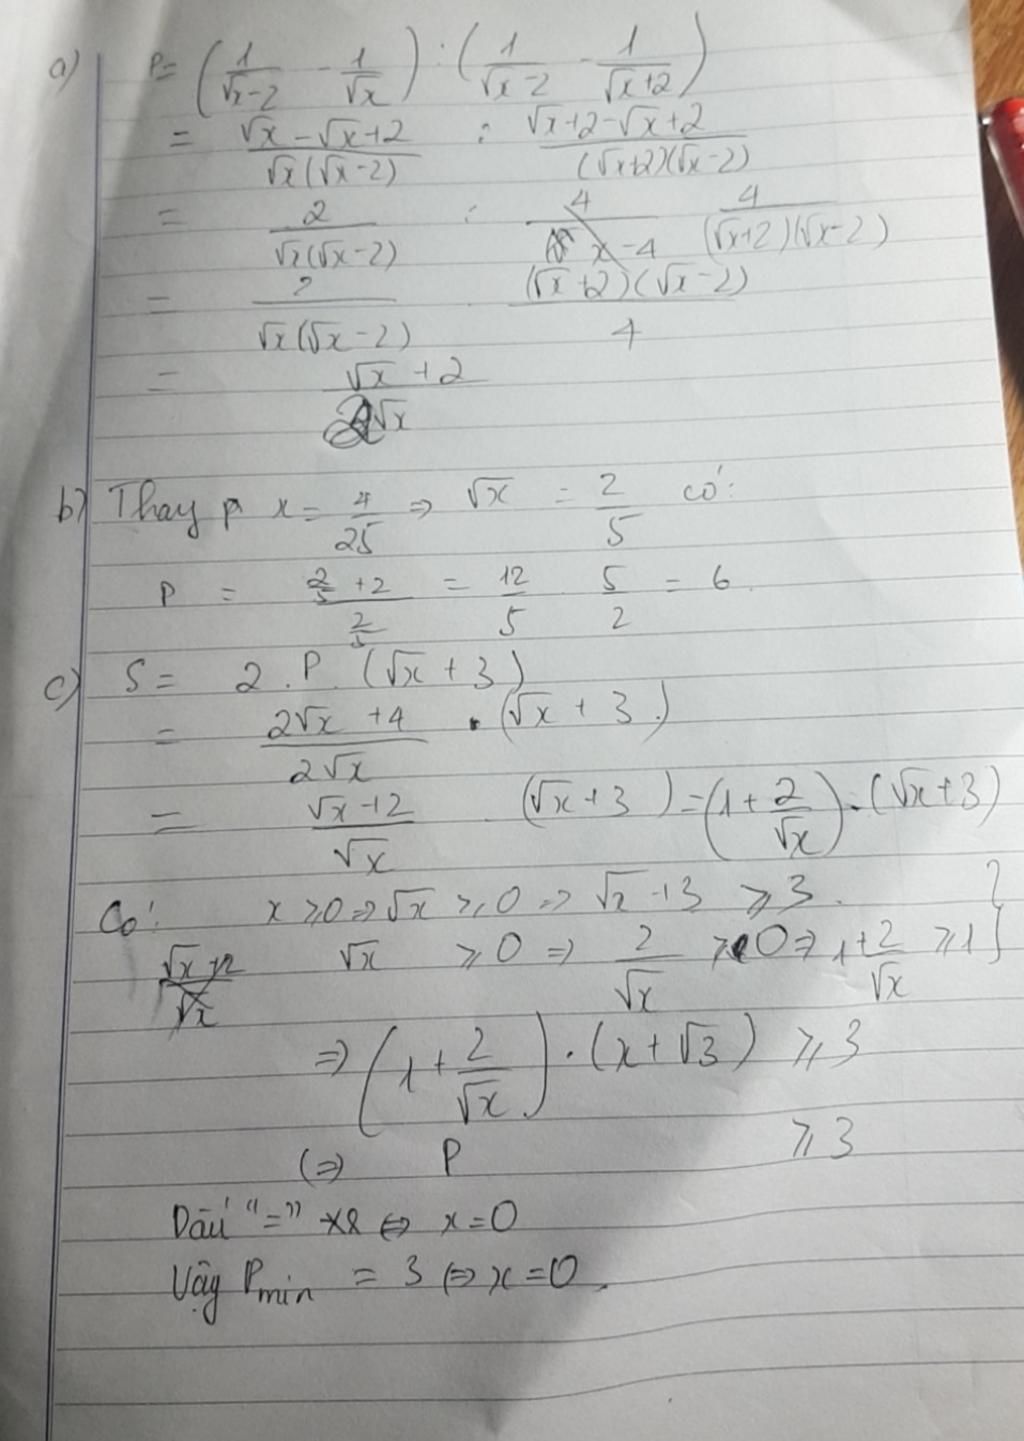 a) P = (1/(√x-2) - 1/√x) : (1/(√x-2) - 1/(√x+2))
= (√x-√x+2)/(√x(√x-2)) : (√x+2-√x+2)/((√x+2)(√x-2))
= 2/(√x(√x-2)) : 4/(x-4) 4/((√x+2)(√x-2))
= 2/(√x(√x-2)) . ((√x+2)(√x-2))/4
= (√x+2)/(2√x)
b) Thay x = 4/25 ⇒ √x = 2/5 có:
P = (2/5+2)/(2/5) = 12/5 . 5/2 = 6
c) S = 2 . P . (√x+3)
= (2√x+4)/(2√x) . (√x+3)
= (√x+2)/√x . (√x+3) = (1+2/√x) . (√x+3)
Có: x ⩾ 0 ⇒ √x ⩾ 0 ⇒ √x+3 ⩾ 3 . }
(√x+2)/√x √x ⩾ 0 ⇒ 2/√x ⩾ 0 ⇒ 1+2/√x ⩾ 1 }
⇒ (1+2/√x) . (x+√3) ⩾ 3
(⇒) P ⩾ 3
Dấu "=" xr ⇔ x=0
Vậy Pmin = 3 ⇔ x=0.